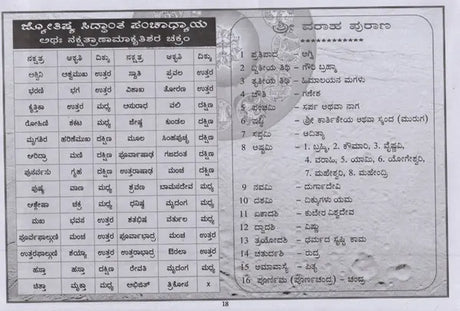 ಜ್ಯೋತಿಷ್ಯ ಸಿದ್ಧಾಂತ ಪಂಚಾಧ್ಯಾಯ
ಅಥ ನಕ್ಷತ್ರಾಣಾಮಾಕೃತಿಶರ ಚಕ್ರಂ
ನಕ್ಷತ್ರ ಆಕೃತಿ ದಿಕ್ಕು ನಕ್ಷತ್ರ ಆಕೃತಿ ದಿಕ್ಕು
ಅಶ್ವಿನಿ ಅಶ್ವಮುಖ ಉತ್ತರ ಸ್ವಾತಿ ಪ್ರವಲ ಉತ್ತರ
ಭರಣಿ ಭಗ ಉತ್ತರ ವಿಶಾಖ ತೋರಣ ಉತ್ತರ
ಕೃತಿಕಾ ಉತ್ತರ ಮಧ್ಯ ಅನುರಾಧ ವಲಿ ದಕ್ಷಿಣ
ರೋಹಿಣಿ ಶಕಟ ಮಧ್ಯ ಜೇಷ್ಠ ಕುಂಡಲ ದಕ್ಷಿಣ
ಮೃಗಶಿರ ಹರಿಣಮುಖ ಮಧ್ಯ ಮೂಲ ಸಿಂಹಪುಚ್ಛ ದಕ್ಷಿಣ
ಆರಿದ್ರಾ ಮಣಿ ದಕ್ಷಿಣ ಪೂರ್ವಾಷಾಢ ಗಜದಂತ ದಕ್ಷಿಣ
ಪುನರ್ವಸು ಗೃಹ ದಕ್ಷಿಣ ಉತ್ತರಾಷಾಢ ಮಂಚ ದಕ್ಷಿಣ
ಪುಷ್ಯ ವಾಣ ಮಧ್ಯ ಶ್ರವಣ ಮಧ್ಯ
ಆಶ್ಲೇಷಾ ಚಕ್ರ ಮಧ್ಯ ಧನಿಷ್ಠ ಮೃದಂಗ ಮಧ್ಯ
ಮಖ ಭವನ ಉತ್ತರ ಶತಭಿಷ ವರ್ತುಲ ಮಧ್ಯ
ಪೂರ್ವಫಾಲ್ಗುಣಿ ಮಂಚ ಉತ್ತರ ಪೂರ್ವಾಭಾದ್ರ ಮಂಚ ಉತ್ತರ
ಉತ್ತರಫಾಲ್ಗುಣಿ ಶಯ್ಯಾ ಉತ್ತರ ಉತ್ತರಾಭಾದ್ರ ಉತ್ತರ
ಹಸ್ತಾ ಹಸ್ತಾ ದಕ್ಷಿಣ ರೇವತಿ ಮೃದಂಗ ಮಧ್ಯ
ಚಿತ್ತಾ ಮುಕ್ತಾ ಮಧ್ಯ ಅಭಿಜಿತ್ ತ್ರಿಕೋನ x
ಶ್ರೀ ವರಾಹ ಪುರಾಣ
***********
1 ಪ್ರತಿಪಾದ – ಅಗ್ನಿ
2 ದ್ವಿತೀಯ ತಿಥಿ – ಗೌರಿ ಬ್ರಹ್ಮಾ
3 ತೃತೀಯ ತಿಥಿ – ಹಿಮಾಲಯನ ಮಗಳು
4 ಚೌತಿ – ಗಣೇಶ
5 ಪಂಚಮಿ – ಸರ್ಪ ಅಥವಾ ನಾಗ
6 ಷಷ್ಠಿ – ಶ್ರೀ ಕಾರ್ತಿಕೇಯ ಅಥವಾ ಸ್ಕಂದ (ಮುರುಗ)
7 ಸಪ್ತಮಿ – ಆದಿತ್ಯಾ
8 ಅಷ್ಟಮಿ – 1. ಬ್ರಹ್ಮಿ, 2. ಕೌಮಾರಿ, 3. ವೈಷ್ಣವಿ,
4. ವರಾಹಿ, 5. ಯಾಮಿ, 6. ಯೋಗೇಶ್ವರಿ,
7. ಮಹೇಶ್ವರಿ, 8. ಮಹೇಂದ್ರಿ
9 ನವಮಿ – ದುರ್ಗಾದೇವಿ
10 ದಶಮಿ – ದಿಕ್ಕುಗಳು ಯಮ
11 ಏಕಾದಶಿ – ಕುಬೇರ ವಿಶ್ವದೇವ
12 ದ್ವಾದಶಿ – ವಿಷ್ಣು
13 ತ್ರಯೋದಶಿ – ಧರ್ಮದ ಸೃಷ್ಟಿ ಕಾಮ
14 ಚತುರ್ದಶಿ – ರುದ್ರ
15 ಅಮಾವಾಸ್ಯೆ – ಪಿತೃ
16 ಪೂರ್ಣಿಮಾ (ಪೂರ್ಣಚಂದ್ರ) – ಚಂದ್ರ
18